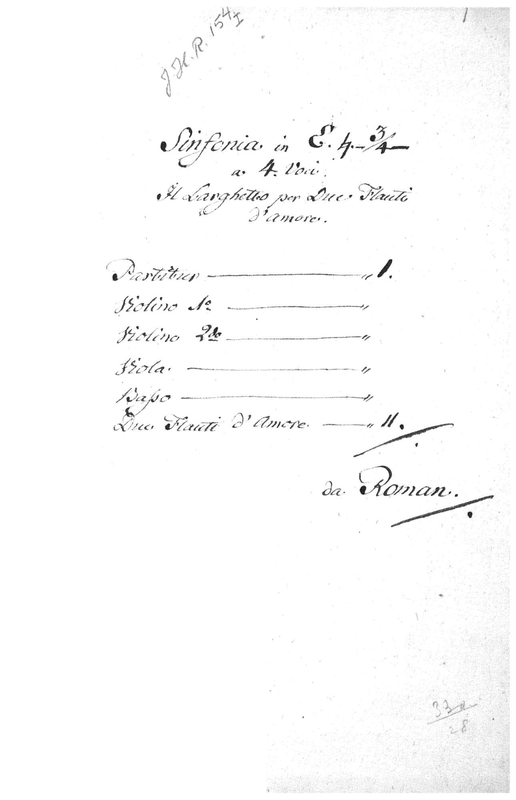 J.H.R. 154 I
Sinfonia in E. 4. 3/4
a 4. Voci.
Il Larghetto per Due Flauti
d'amore.
Partitur — „ 1.
Violino 1o — „
Violino 2do — „
Viola. — „
Baſso — „
Due Flauti d'Amore. — „ 11.
da Roman.
28